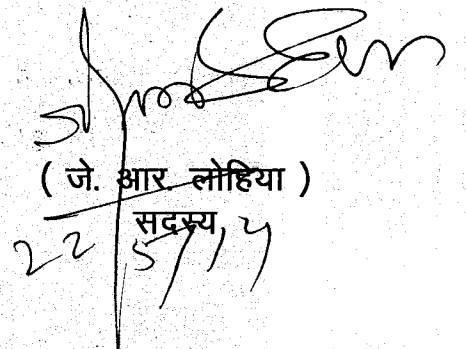 ( जे. आर. लोहिया )
सदस्य
22/5/14